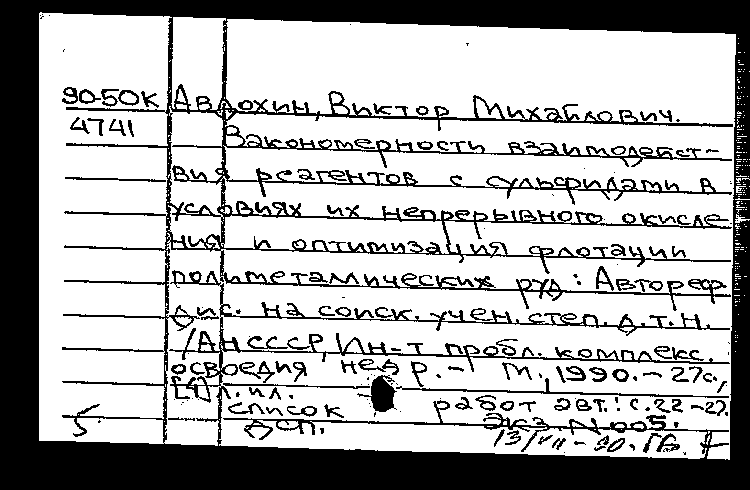 90-50К Авдохин, Виктор Михайлович.
4741 Закономерности взаимодейст-
вия реагентов с сульфидами в
условиях их непрерывного окисле
ния и оптимизация флотации
полиметаллических руд: Автореф.
дис. на соиск. учен. степ. д.т.н.
/АН СССР, Ин-т пробл. комплекс.
освоения недр. - М., 1990. - 27с.,
[1] л. ил.
список работ авт.: с.22-27.
5. ДСП. Экз. N005.
13/VII-90.